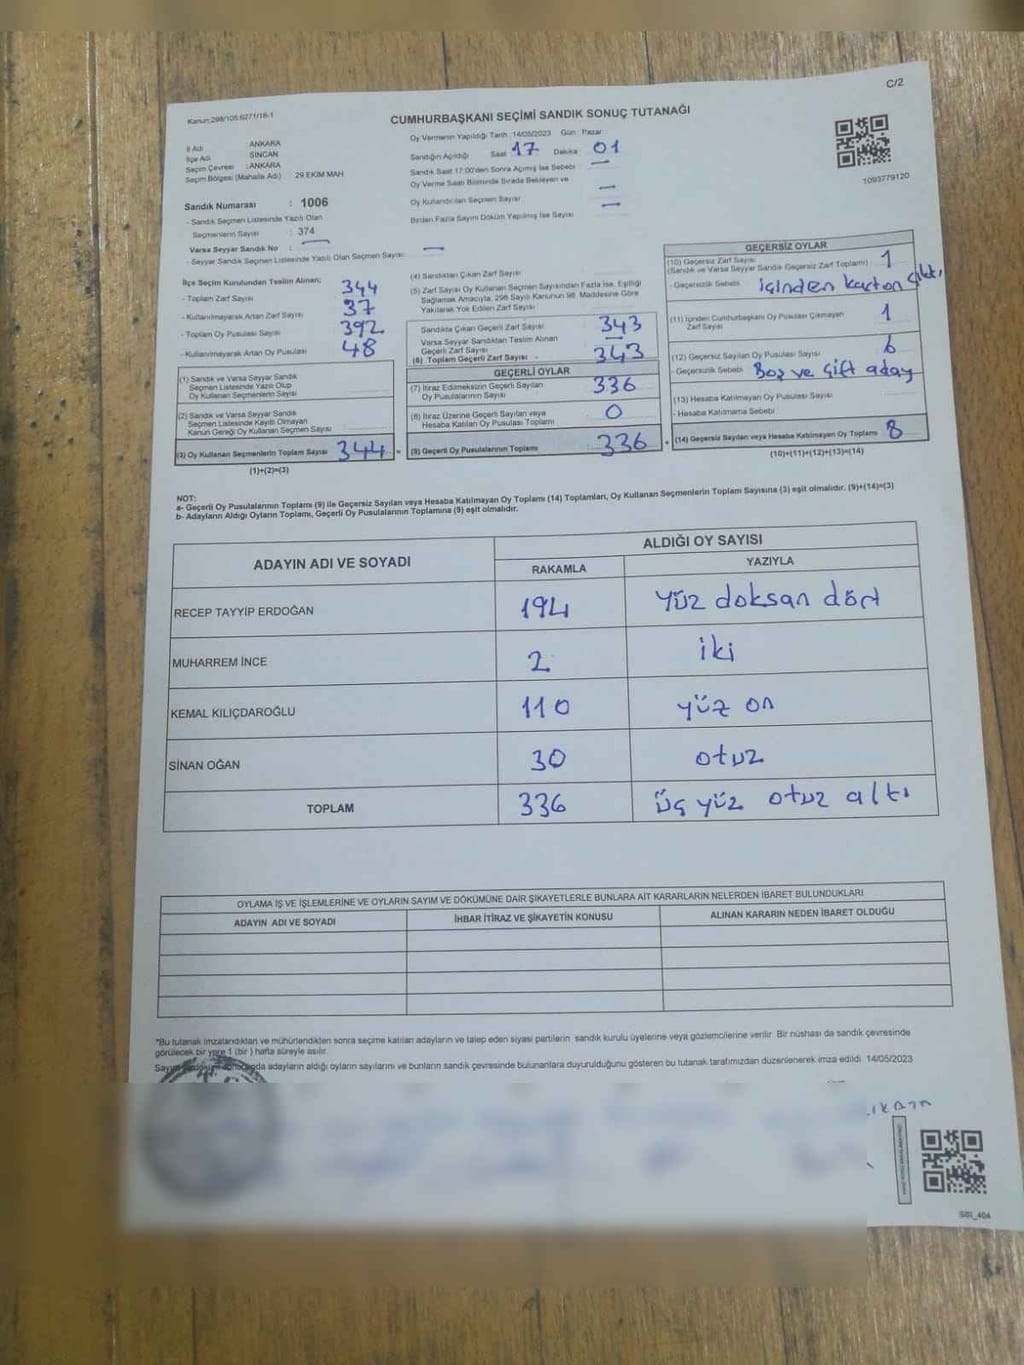 C/2
Kanun:298/105,6271/18-1
CUMHURBAŞKANI SEÇİMİ SANDIK SONUÇ TUTANAĞI
İl Adı ANKARA
İlçe Adı SİNCAN
Seçim Çevresi : ANKARA
Seçim Bölgesi (Mahalle Adı) 29 EKİM MAH
Oy Vermenin Yapıldığı Tarih : 14/05/2023 Gün : Pazar
Sandığın Açıldığı Saat 17 Dakika 01
Sandık Saat 17:00'den Sonra Açılmış İse Sebebi —
Oy Verme Saati Bitiminde Sırada Bekleyen ve
Oy Kullandırılan Seçmen Sayısı —
Birden Fazla Sayım Döküm Yapılmış İse Sayısı —
1093779120
Sandık Numarası : 1006
- Sandık Seçmen Listesinde Yazılı Olan
Seçmenlerin Sayısı : 374
Varsa Seyyar Sandık No : —
- Seyyar Sandık Seçmen Listesinde Yazılı Olan Seçmen Sayısı: —
İlçe Seçim Kurulundan Teslim Alınan;
- Toplam Zarf Sayısı 344
- Kullanılmayarak Artan Zarf Sayısı 37
- Toplam Oy Pusulası Sayısı 392
- Kullanılmayarak Artan Oy Pusulası 48
(1) Sandık ve Varsa Seyyar Sandık
Seçmen Listesinde Yazılı Olup
Oy Kullanan Seçmenlerin Sayısı
(2) Sandık ve Varsa Seyyar Sandık
Seçmen Listesinde Kayıtlı Olmayan
Kanun Gereği Oy Kullanan Seçmen Sayısı
(3) Oy Kullanan Seçmenlerin Toplam Sayısı 344 =
(1)+(2)=(3)
(4) Sandıktan Çıkan Zarf Sayısı
(5) Zarf Sayısı Oy Kullanan Seçmen Sayısından Fazla İse, Eşitliği
Sağlamak Amacıyla, 298 Sayılı Kanunun 98. Maddesine Göre
Yakılarak Yok Edilen Zarf Sayısı
Sandıkta Çıkan Geçerli Zarf Sayısı 343
Varsa Seyyar Sandıktan Teslim Alınan
Geçerli Zarf Sayısı —
(6) Toplam Geçerli Zarf Sayısı 343
GEÇERLİ OYLAR
(7) İtiraz Edilmeksizin Geçerli Sayılan
Oy Pusulalarının Sayısı 336
(8) İtiraz Üzerine Geçerli Sayılan veya
Hesaba Katılan Oy Pusulası Toplamı 0
(9) Geçerli Oy Pusulalarının Toplamı 336 +
GEÇERSİZ OYLAR
(10) Geçersiz Zarf Sayısı
(Sandık ve Varsa Seyyar Sandık Geçersiz Zarf Toplamı) 1
- Geçersizlik Sebebi içinden karton çıktı
(11) İçinden Cumhurbaşkanı Oy Pusulası Çıkmayan
Zarf Sayısı 1
(12) Geçersiz Sayılan Oy Pusulası Sayısı 6
- Geçersizlik Sebebi Boş ve Çift aday
(13) Hesaba Katılmayan Oy Pusulası Sayısı
- Hesaba Katılmama Sebebi
(14) Geçersiz Sayılan veya Hesaba Katılmayan Oy Toplamı 8
(10)+(11)+(12)+(13)=(14)
NOT:
a- Geçerli Oy Pusulalarının Toplamı (9) ile Geçersiz Sayılan veya Hesaba Katılmayan Oy Toplamı (14) Toplamları, Oy Kullanan Seçmenlerin Toplam Sayısına (3) eşit olmalıdır. (9)+(14)=(3)
b- Adayların Aldığı Oyların Toplamı, Geçerli Oy Pusulalarının Toplamına (9) eşit olmalıdır.
ADAYIN ADI VE SOYADI ALDIĞI OY SAYISI
RAKAMLA YAZIYLA
RECEP TAYYİP ERDOĞAN 194 yüz doksan dört
MUHARREM İNCE 2 iki
KEMAL KILIÇDAROĞLU 110 yüz on
SİNAN OĞAN 30 otuz
TOPLAM 336 üç yüz otuz altı
OYLAMA İŞ VE İŞLEMLERİNE VE OYLARIN SAYIM VE DÖKÜMÜNE DAİR ŞİKAYETLERLE BUNLARA AİT KARARLARIN NELERDEN İBARET BULUNDUKLARI
ADAYIN ADI VE SOYADI İHBAR İTİRAZ VE ŞİKAYETİN KONUSU ALINAN KARARIN NEDEN İBARET OLDUĞU
*Bu tutanak imzalandıktan ve mühürlendikten sonra seçime katılan adayların ve talep eden siyasi partilerin sandık kurulu üyelerine veya gözlemcilerine verilir. Bir nüshası da sandık çevresinde
görülecek bir yere 1 (bir ) hafta süreyle asılır.
adayların aldığı oyların sayılarını ve bunların sandık çevresinde bulunanlara duyurulduğunu gösteren bu tutanak tarafımızdan düzenlenerek imza edildi. 14/05/2023
SBI_404